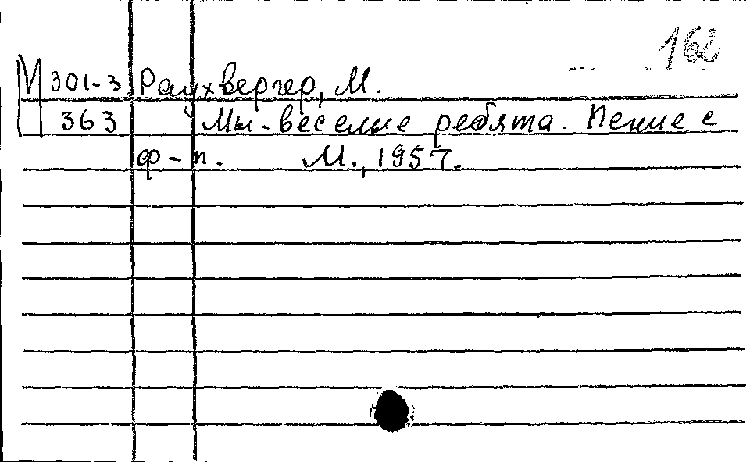 162
М 301-3 Раухвергер, М.
363 Мы-веселые ребята. Пение с
ф-п. М., 1957.